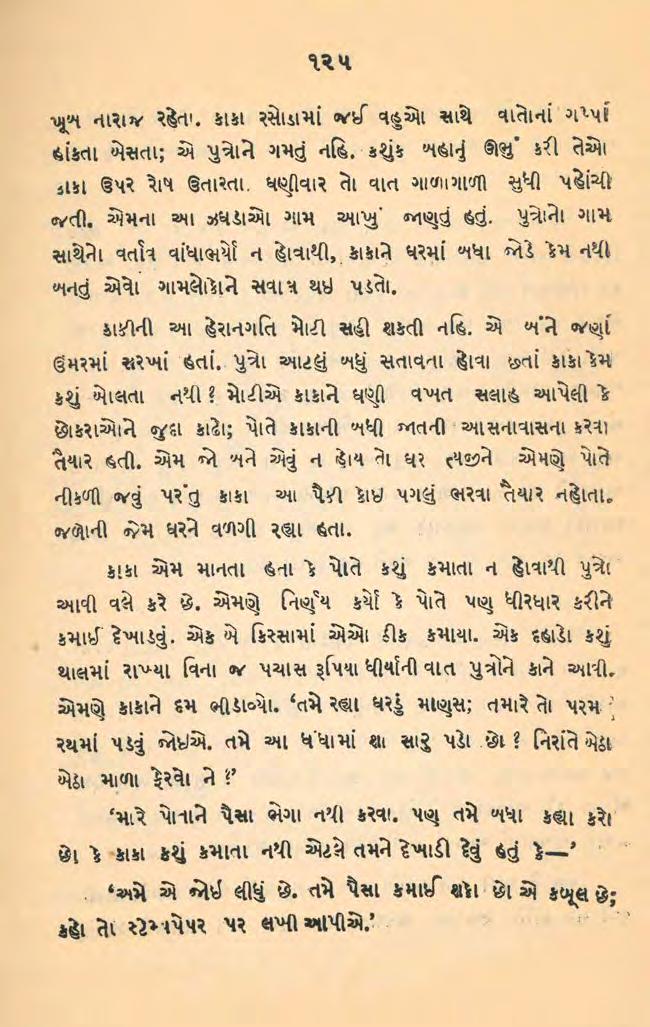 ૧૨૫
ખૂબ નારાજ રહેતા. કાકા રસોડામાં જઈ વહુઓ સાથે વાતોનાં ગપ્પાં
હાંકતા બેસતા; એ પુત્રોને ગમતું નહિ. કશુંક બહાનું ઊભું કરી તેઓ
કાકા ઉપર રોષ ઉતારતા. ઘણીવાર તો વાત ગાળાગાળી સુધી પહોંચી
જતી. એમના આ ઝઘડાઓ ગામ આખું જાણતું હતું. પુત્રોનો ગામ
સાથેનો વર્તાવ વાંધાભર્યો ન હોવાથી, કાકાને ઘરમાં બધા જોડે કેમ નથી
બનતું એવો ગામલોકોને સવાલ થઇ પડતો.
કાકીની આ હેરાનગતિ મોટી સહી શકતી નહિ. એ બંને જણાં
ઉંમરમાં સરખાં હતાં. પુત્રો આટલું બધું સતાવના હોવા છતાં કાકા કેમ
કશું બોલતા નથી? મોટીએ કાકાને ઘણી વખત સલાહ આપેલી કે
છોકરાઓને જુદા કાઢો; પોતે કાકાની બધી જાતની આસનાવાસના કરવા
તૈયાર હતી. એમ જો બને એવું ન હોય તો ઘર ત્યજીને એમણે પોતે
નીકળી જવું પરંતુ કાકા આ પૈકી કોઇ પગલું ભરવા તૈયાર નહોતા.
જળોની જેમ ઘરને વળગી રહ્યા હતા.
કાકા એમ માનતા હતા કે પોતે કશું કમાતા ન હોવાથી પુત્રો
આવી વલે કરે છે. એમણે નિર્ણય કર્યો કે પોતે પણ ધીરધાર કરીને
કમાઈ દેખાડવું. એક બે કિસ્સામાં એઓ ઠીક કમાયા. એક દહાડો કશું
થાલમાં રાખ્યા વિના જ પચાસ રૂપિયા ધીર્યાની વાત પુત્રોને કાને આવી.
એમણે કાકાને દમ ભીડાવ્યો. ‘તમે રહ્યા ઘરડું માણુસ; તમારે તો પરમા
રથમાં પડવું જોઇએ. તમે આ ધંધામાં શા સારુ પડો છો? નિરાંતે બેઠા
બેઠા માળા ફેરવો ને!’
‘મારે પોતાને પૈસા ભેગા નથી કરવા. પણ તમે બધા કહ્યા કરો
છો કે કાકા કશું કમાતા નથી એટલે તમને દેખાડી દેવું હતું કે—’
‘અમે એ જોઇ લીધું છે. તમે પૈસા કમાઈ શકો છો એ કબૂલ છે;
કહો તો સ્ટેમ્પપેપર પર લખી આપીએ.’